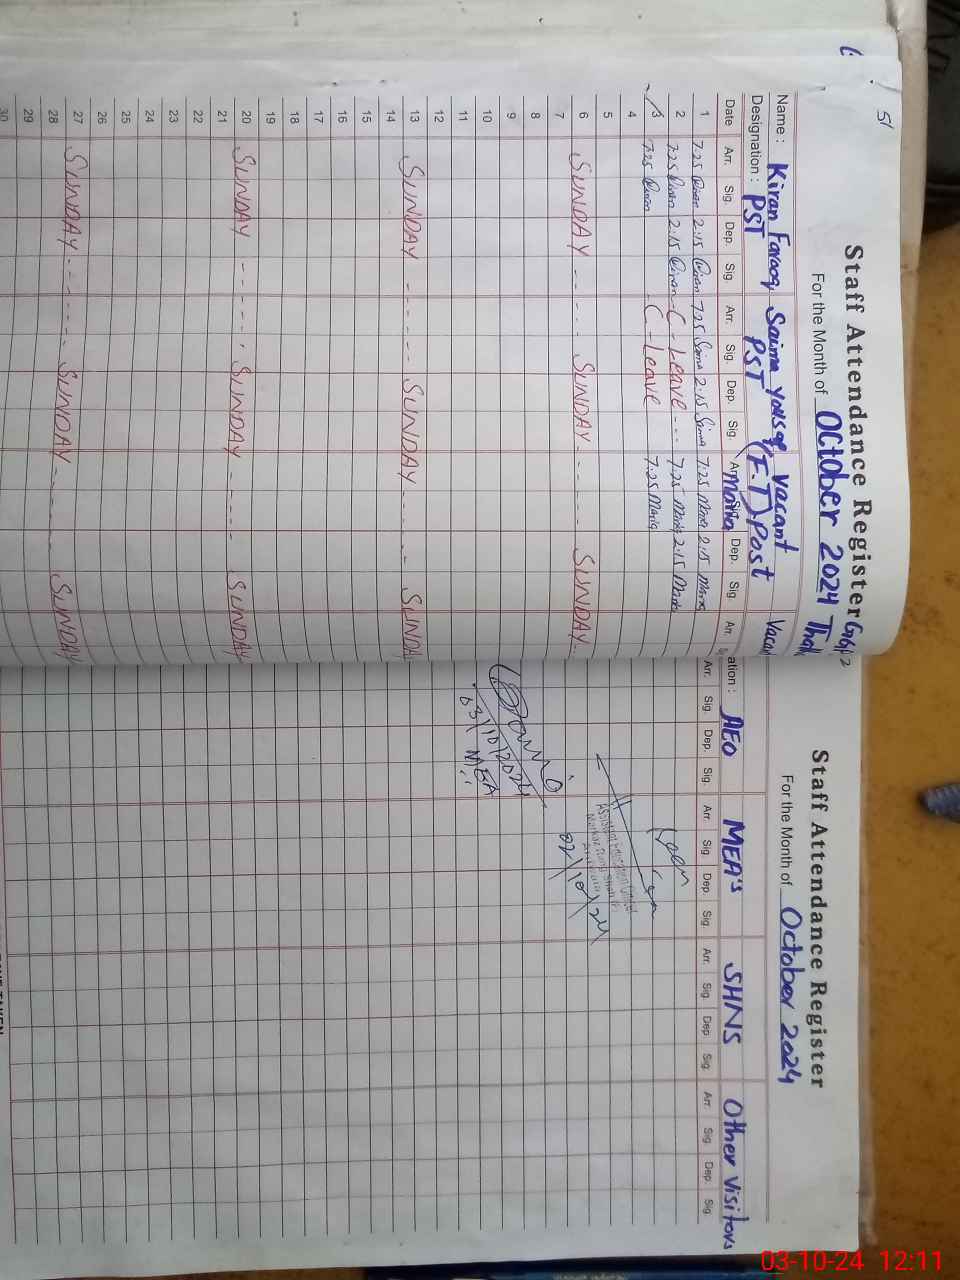 51
Staff Attendance Register
For the Month of October 2024
Name : Kiran Farooq Saima Yousaf Vacant Vacan
Designation : PST PST (F.T) Post
Maria
Date Arr. Sig. Dep. Sig. Arr. Sig. Dep. Sig. Arr. Sig. Dep. Sig. Arr.
1 7.25 Kiran 2:15 Kiran 7.25 Saima 2.15 Saima 7.25 Maria 2:15 Maria
2 7.25 Kiran 2:15 Kiran - C - Leave - - 7.25 Maria 2:15 Maria
3 7.25 Kiran - C - Leave 7.25 Maria
4
5
6 SUNDAY - - - - SUNDAY - - - - - SUNDAY - -
7
8
9
10
11
12
13 SUNDAY - - - - - - SUNDAY - - - - SUNDA
14
15
16
17
18
19
20 SUNDAY - - - - - SUNDAY - - - - - SUNDAY
21
22
23
24
25
26
27 SUNDAY - - - - - - SUNDAY - - - - - SUNDAY
28
29
30
Staff Attendance Register
For the Month of October 2024
ation : AEO MEA's SHNS Other Visitors
Arr. Sig. Dep. Sig. Arr. Sig. Dep. Sig. Arr. Sig. Dep. Sig. Arr. Sig. Dep. Sig.
Assistant Education Officer
02/10/24
03/10/2024
MEA
03-10-24 12:11